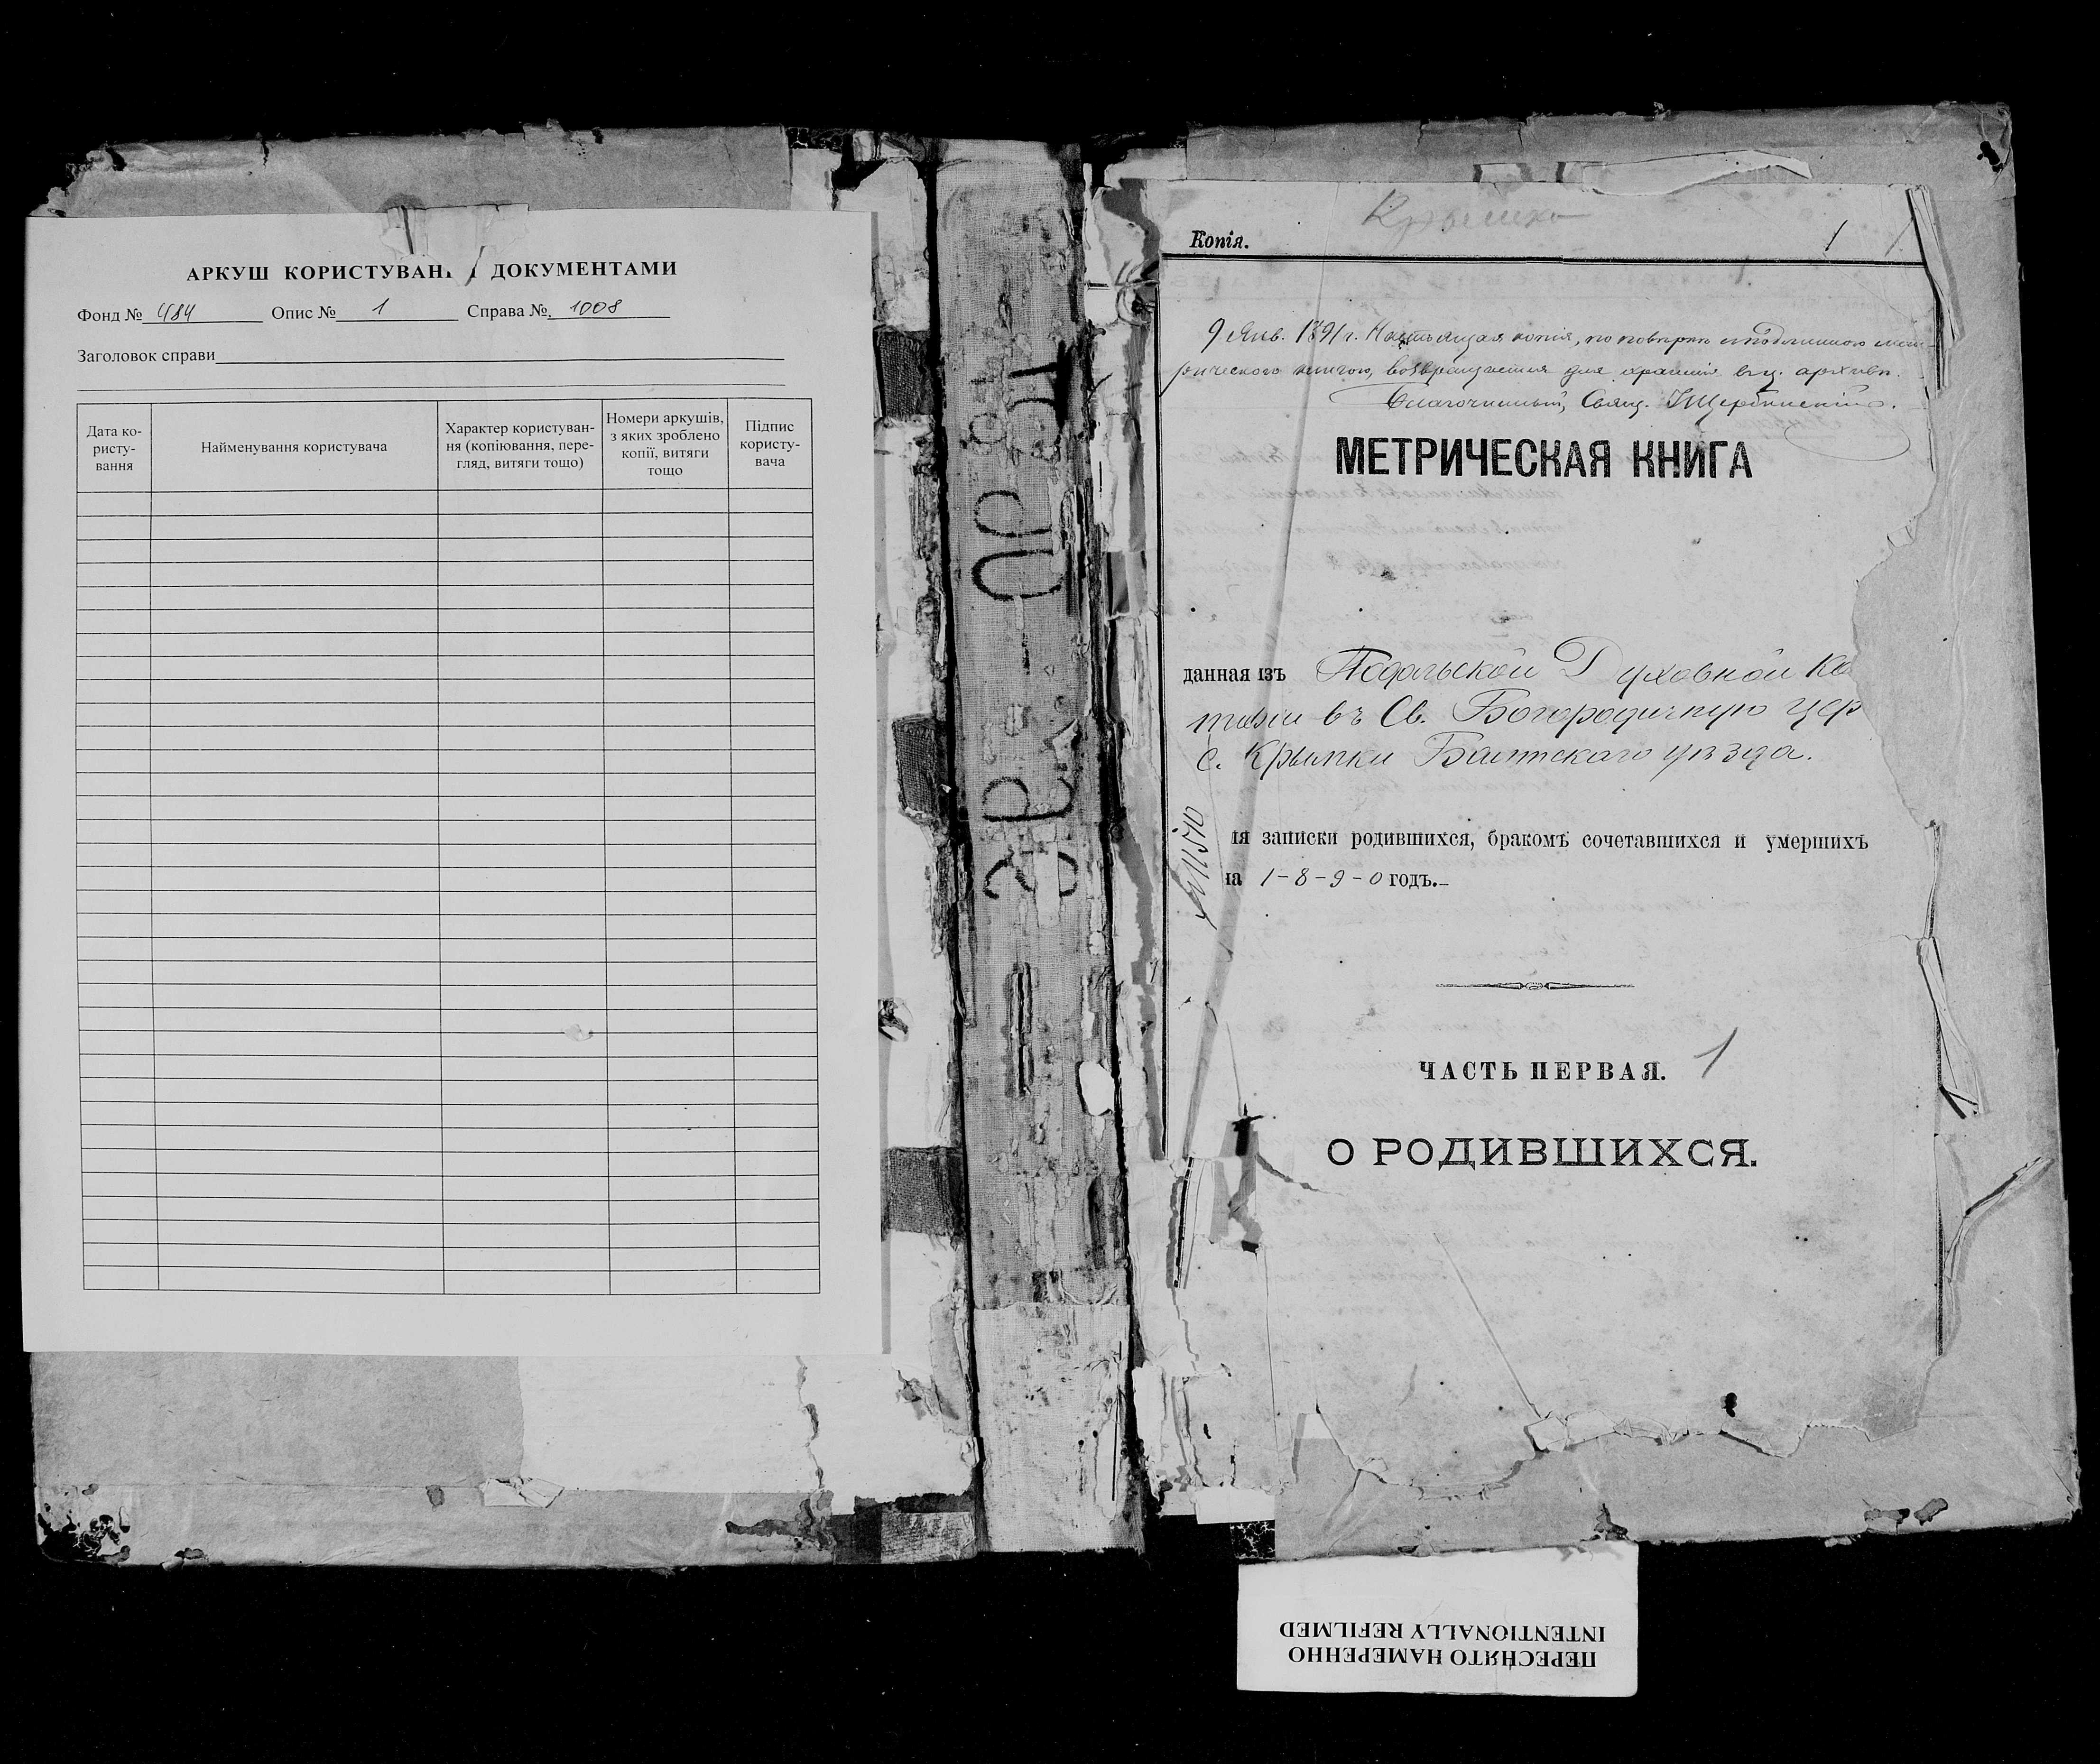 АРКУШ КОРИСТУВАН ДОКУМЕНТАМИ
Фонд № 484 Опис № 1 Справа №. 1008
Заголовок справи
Дата ко-
ристу-
вання
Найменування користувача
Характер користуван-
ня (копіювання, пере-
гляд, витяги тощо)
Номери аркушів,
з яких зроблено
копії, витяги
тощо
Підпис
користу-
вача
Копія.
1
9 Янв. 1891 г. Настоящая копія, по повѣркѣ съ подлинною мет-
рическою книгою, возвращается для храненія въ ц. архивѣ.
Благочинный, Свящ.
МЕТРИЧЕСКАЯ КНИГА
данная изъ Подольской Духовной Ко
в Св. Богородичную цер
с. Крымки Балтскаго уѣзда.
ія записки родившихся, бракомъ сочетавшихся и умершихъ
на 1-8-9-0 годъ.
ЧАСТЬ ПЕРВАЯ. 1
О РОДИВШИХСЯ.
ПЕРЕСНЯТО НАМЕРЕННО
INTENTIONALLY REFILMED